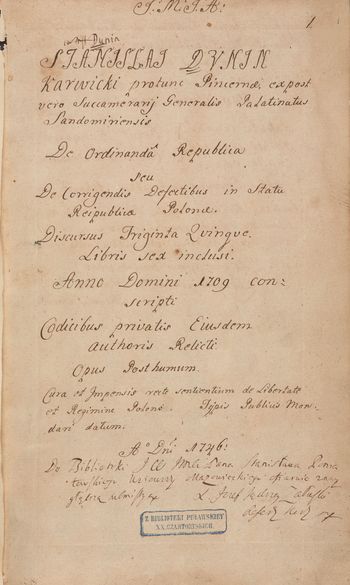 J. M. J. A.
1
Dunin
STANISLAI DVNIN
Karwicki protunc Pincernæ, expost
vero Succamerarij Generalis Palatinatus
Sandomiriensis
De Ordinandâ Republica
seu
De Corrigendis Defectibus in Statu
Reipublicæ Polonæ.
Discursus Triginta Qvinqve.
Libris sex inclusi.
Anno Domini 1709 con=
scripti
Codicibus privatis Eiusdem
Authoris Relicti.
Opus Posthumum.
Cura et Impensis recte sentientium de Libertate
et Regimine Polono. Typis Publicis Man=
dari datum.
Aº Dni 1746:
Do Biblioteki J
Pana Stanisława Ponia
towskiego Mazowieckiego ofiaruie
Józef Jędrzey Załuski
Z BIBLIOTEKI PUŁAWSKIEY
XX. CZARTORYSKICH.